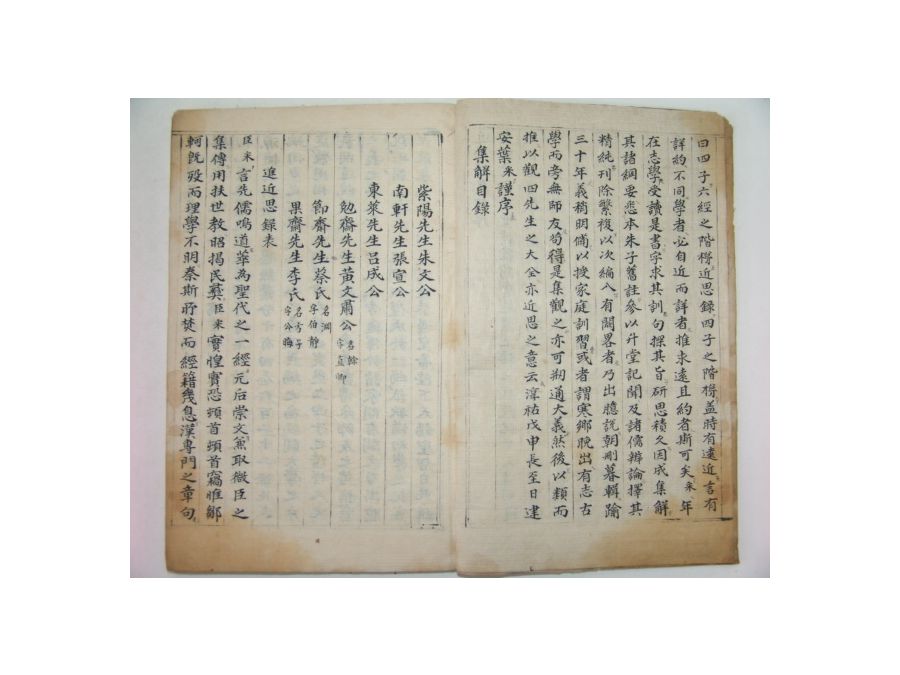 曰四子六經之階梯近思録四子之階梯盖時有遠近言有
詳約不同學者必自近而詳者推求遠且約者斯可矣采年
在志學受讀是書字求其訓句探其旨研思積久因成集解
其諸綱要悉本朱子舊註參以升堂記聞及諸儒辨論擇其
精純刊除繁複以次編入有闕畧者乃出臆説朝刪暮輯踰
三十年義稍明備以授家庭訓習或者謂寒鄉晩出有志古
學而旁無師友苟得是集觀之亦可刱通大義然後以類而
推以觀四先生之大全亦近思之意云淳祐戊申長至日建
安葉采謹序
集解目録
紫陽先生朱文公
南軒先生張宣公
東萊先生呂成公
勉齋先生黄文肅公 名榦 字直卿
節齋先生蔡氏 名淵 字伯静
果齋先生李氏 名方子 字公晦
進近思録表
臣采言先儒鳴道萃為聖代之一經元后崇文兼取微臣之
集傳用扶世教昭揭民彛臣采實惶實恐頓首頓首竊惟鄒
軻旣殁而理學不明秦斯所焚而經籍幾息漢專門之章句